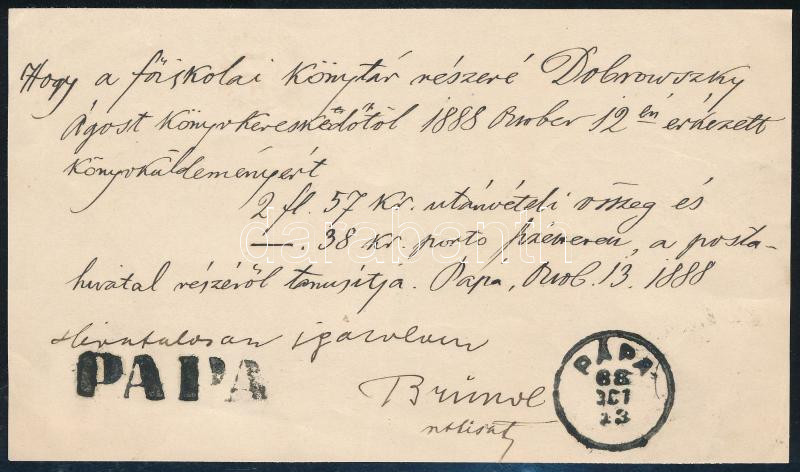 Hogy a főiskolai könyvtár részeré Dobrowszky
Ágost könyvkereskedőtől 1888 October 12 én érkezett
könyvküldeményért
2 fl. 57 Kr. utánvételi összeg és
—. 38 kr. porto fizettetett, a posta-
hivatal részéről tanusítja. Pápa, Octob. 13. 1888
Hivatalosan igazolom
PAPA
PÁPA
88
OCT
13
darabanth